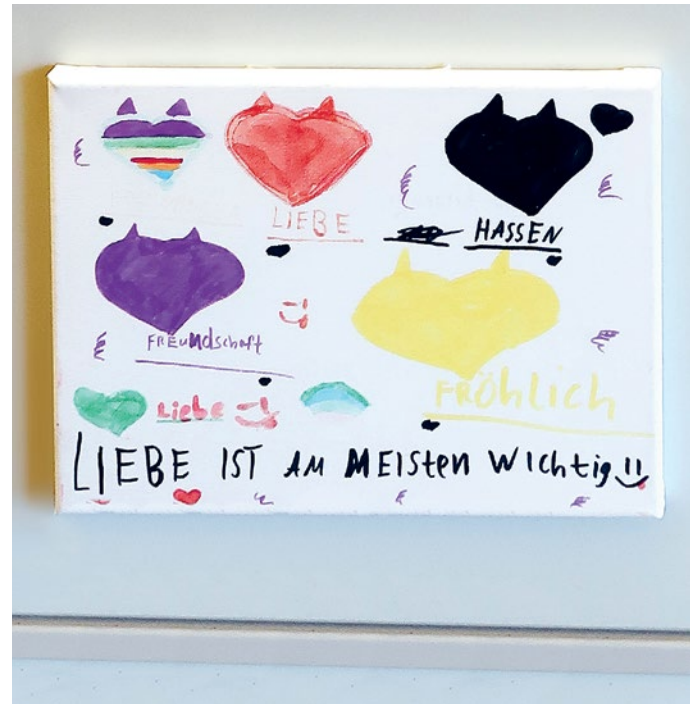 LIEBE
HASSEN
FREundschaft
FRÖhlich
Liebe
LIEBE IST AM MEISten WIchtig!!